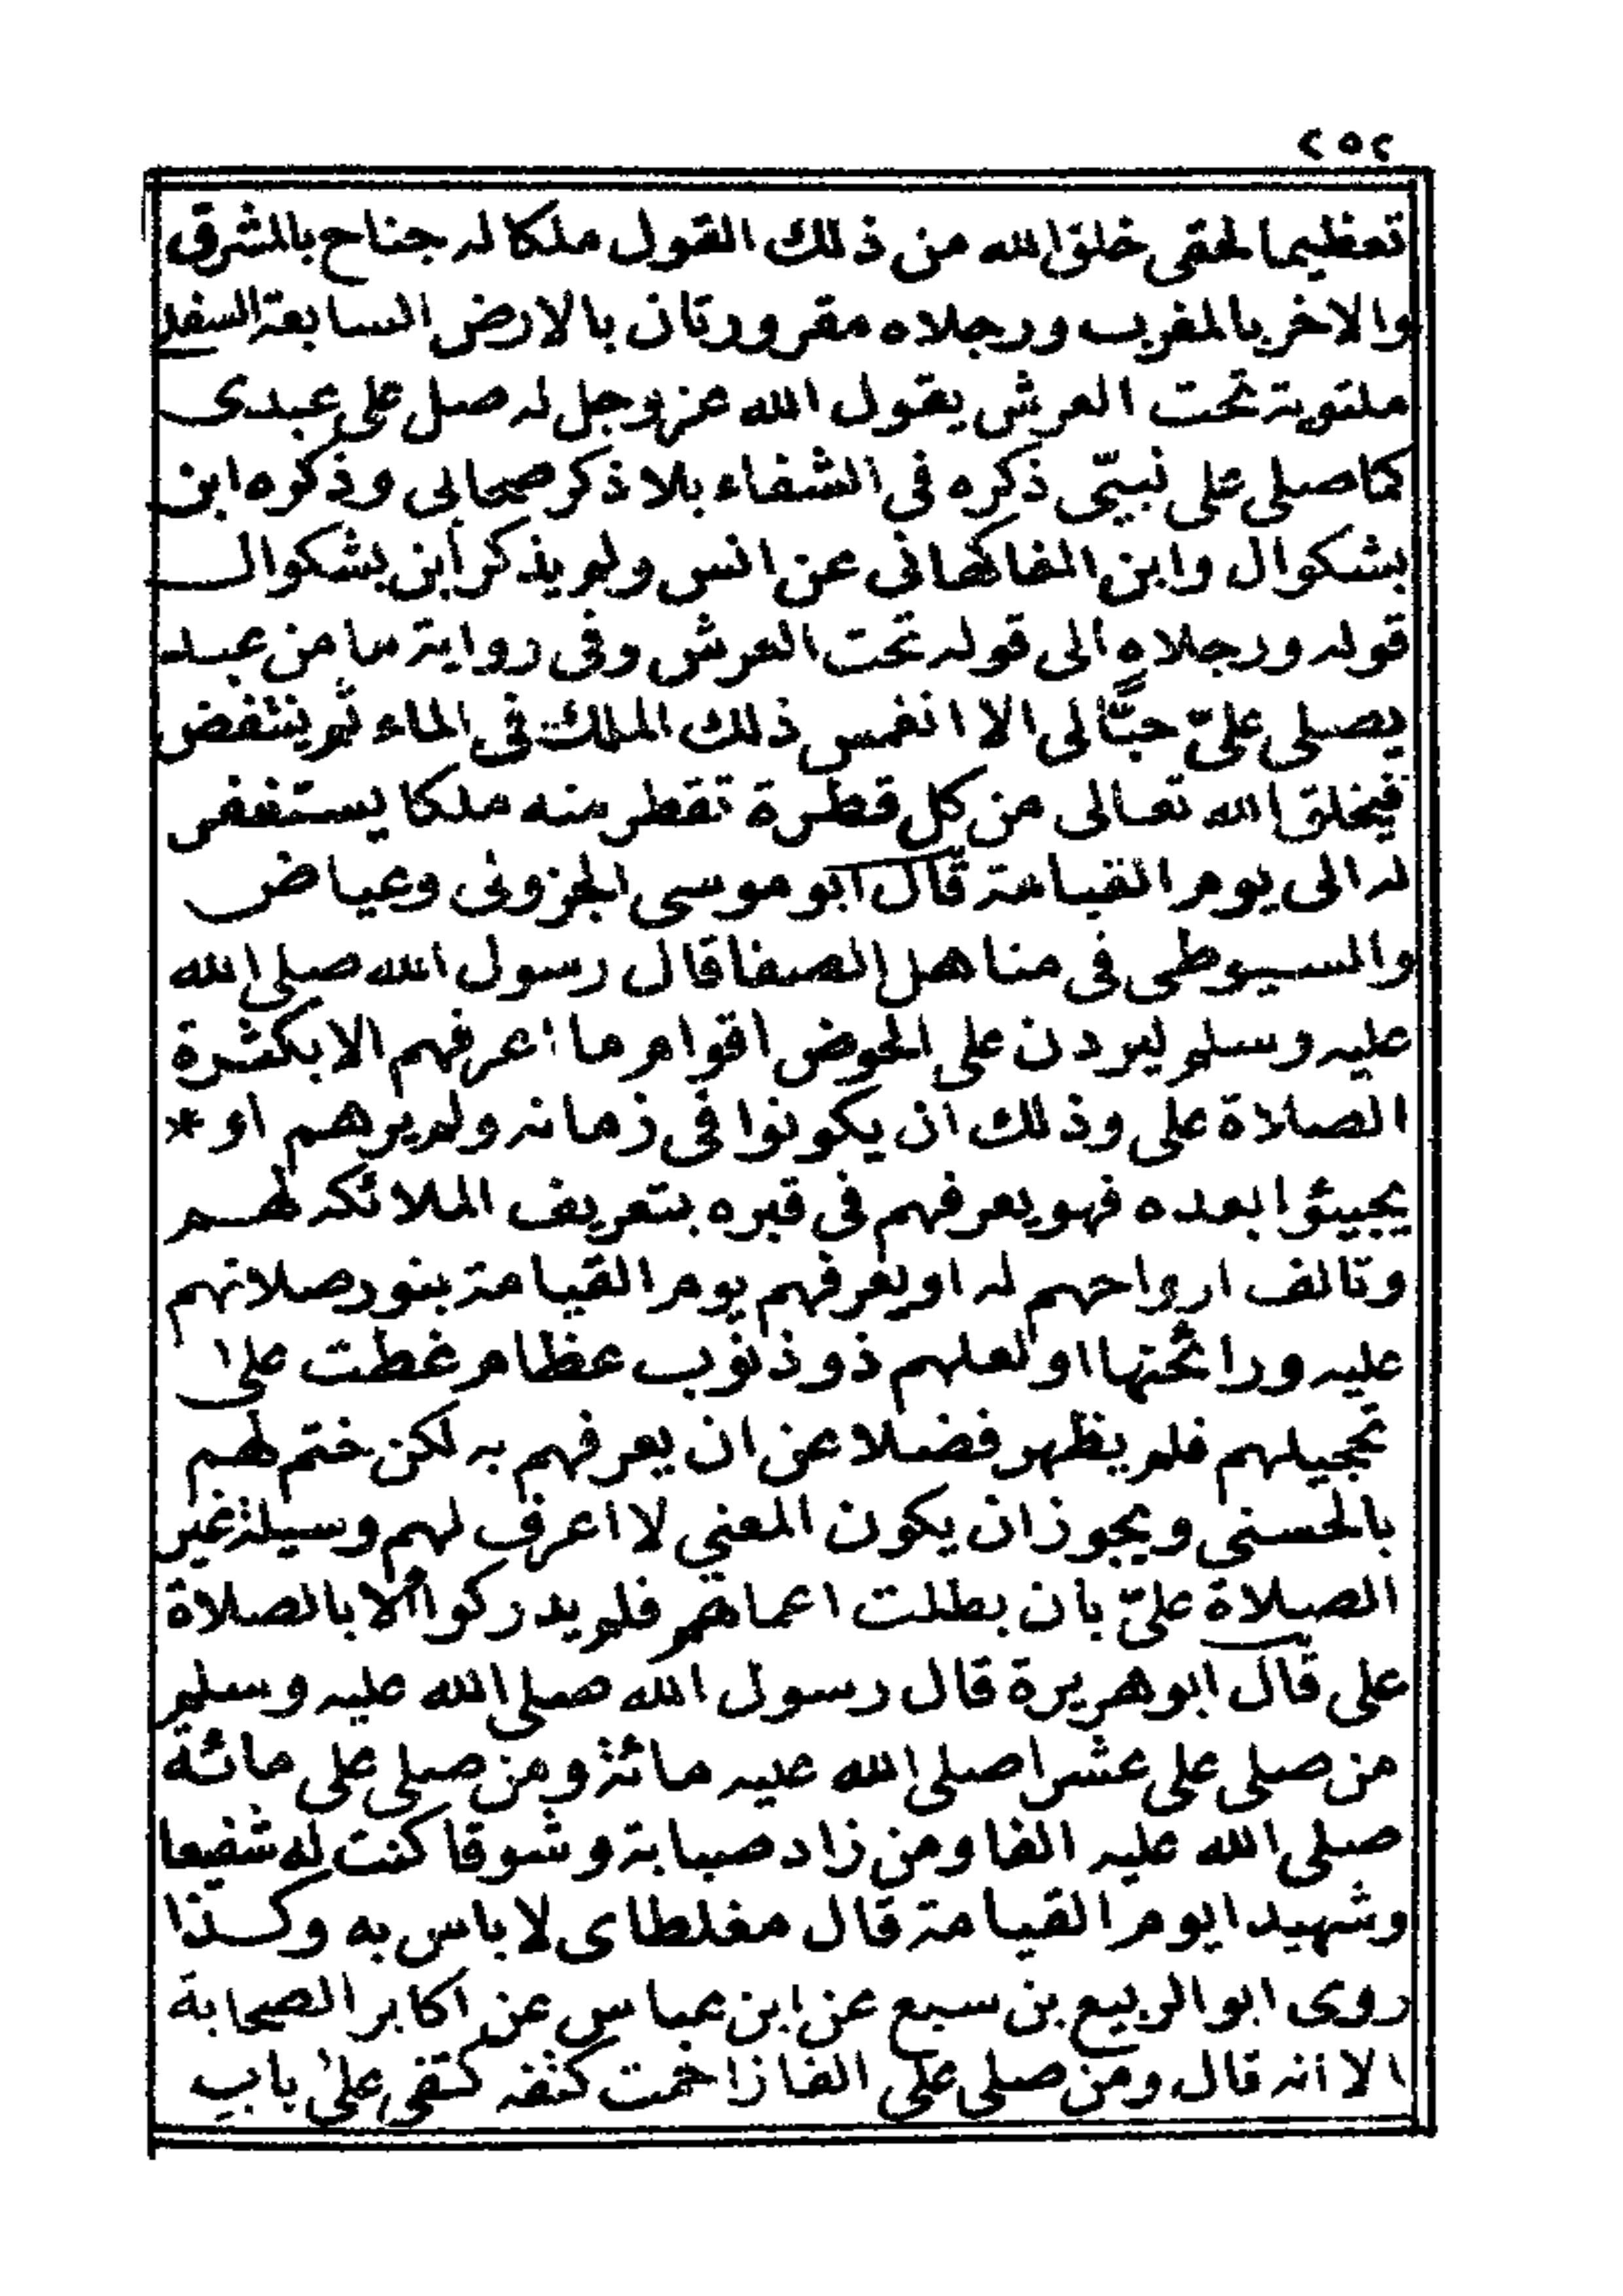 ٢٥٢
تعظيما لحقى خلق الله من ذلك القول ملكا له جناح بالمشرق
والاخر بالمغرب ورجلاه مقرورتان بالارض السابعة السفلى
ملتوية تحت العرش يقول الله عز وجل له صل على عبدى
كما صلى على نبيّى ذكره فى الشفاء بلا ذكر صحابى وذكره ابن
بشكوال وابن الفاكهانى عن انس ولم يذكر أبن بشكوال
قوله ورجلاه الى قوله تحت العرش وفى رواية ما من عبد
يصلى علىّ حبًّا لى الا انغمس ذلك الملك فى الماء ثم ينتفض
فيخلق الله تعالى من كل قطرة تقطر منه ملكا يستغفر
له الى يوم القيامة قال ابو موسى الجزونى وعياض
والسيوطى فى مناهل الصفا قال رسول الله صلى الله
عليه وسلم ليردن على الحوض اقوام ما اعرفهم الا بكثرة
الصلاة على وذلك ان يكونوا فى زمانه ولم يرهم او *
يجيئوا بعده فهو يعرفهم فى قبره بتعريف الملائكة لهم
وتالف ارواحهم له او يعرفهم يوم القيامة بنور صلاتهم
عليه ورائحتها او لعلهم ذو ذنوب عظام غطت على
تجيلهم فلم يظهر فضلا عن ان يعرفهم به لكن ختم لهم
بالحسنى ويجوز ان يكون المعني لا اعرف لهم وسيلة غير
الصلاة علىّ بان بطلت اعمالهم فلم يدركوا الا بالصلاة
على قال ابو هريرة قال رسول الله صلى الله عليه وسلم
من صلى على عشرا صلى الله عليه مائة ومن صلى على مائة
صلى الله عليه الفا ومن زاد صبابة وشوقا كنت له شفيعا
وشهيدا يوم القيامة قال مغلطاى لا باس به وكذا
روى ابو الربيع بن سبع عن ابن عباس عن اكابر الصحابة
الا انه قال ومن صلى على الفا زاحمت كتفه كتفى على باب